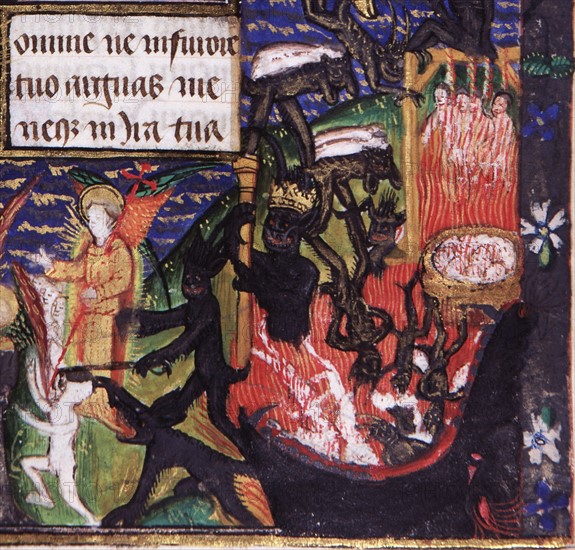 omine ne in furore
tuo arguas me
neqꝫ in ira tua